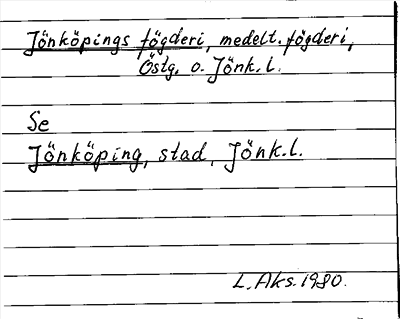 Jönköpings fögderi, medelt. fögderi,
Östg. o. Jönk. l.
Se
Jönköping, stad, Jönk. l.
L. Aks. 1980.